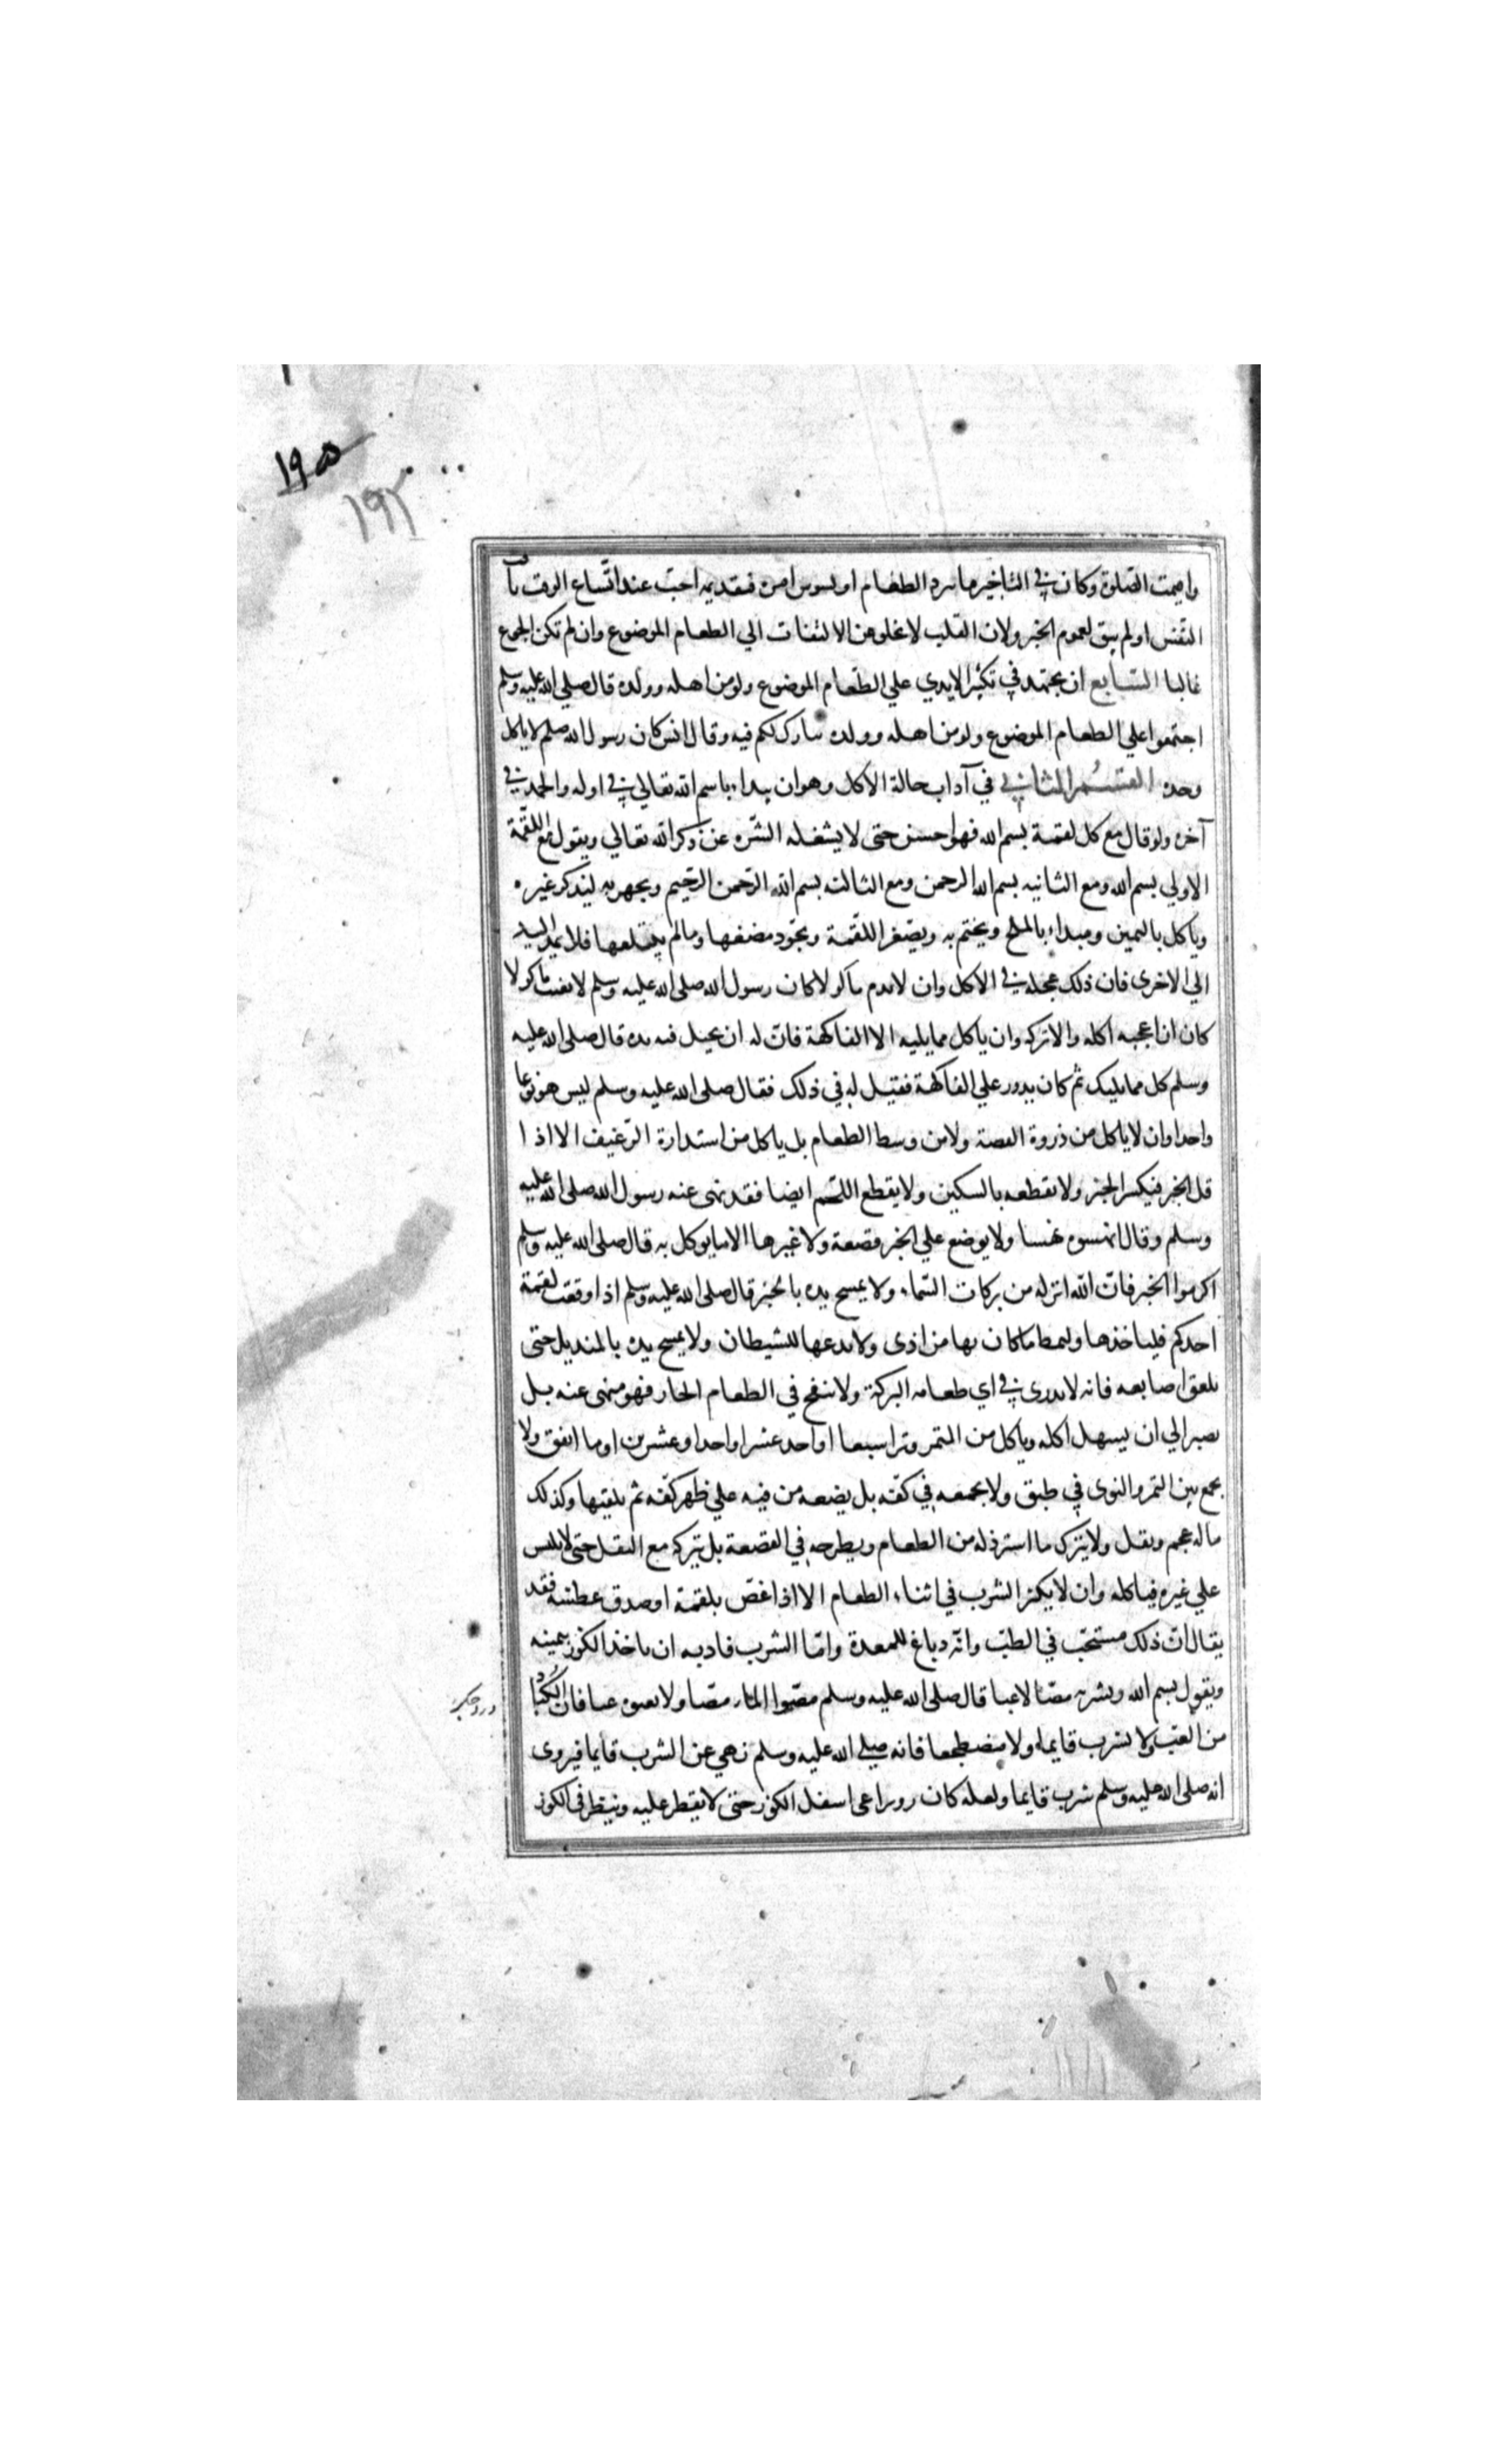 ١٩٥
١٩٢
واقيمت الصلوة وكان في التاخير ما يبرد الطعام او يسوس امره فتقديمه احب عند اتساع الوقت تاقت
النفس او لم يتق لعموم الخبر ولان القلب لا يخلو من الالتفات الي الطعام الموضوع وان لم تكن الجوع
غالبا السابع ان يجتهد في تكثير الايدي علي الطعام الموضوع ولو من اهله وولده قال صلي الله عليه وسلم
اجتمعوا علي الطعام الموضوع ولو من اهله وولده يبارك لكم فيه وقال انس كان رسول الله صلم لا ياكل
وحده القسم الثاني في آداب حالة الاكل وهو ان يبداء باسم الله تعالي في اوله والحمد في
آخره ولو قال مع كل لقمة بسم الله فهو احسن حتى لا يشغله الشره عن ذكر الله تعالي ويقول مع اللقمة
الاولي بسم الله ومع الثانيه بسم الله الرحمن ومع الثالثه بسم الله الرحمن الرحيم ويجهر به ليذكر غيره
وياكل باليمين ويبداء بالملح ويختم به ويصغر اللقمة ويجود مضغها ومالم يبتلعها فلا يمد اليد
الي الاخرى فان ذلك عجلة في الاكل وان لا يذم ماكولا كان رسول الله صلى الله عليه وسلم لا يعيب ماكولا
كان اذا عجبه اكله والا تركه وان ياكل مما يليه الا الفاكهة فان له ان يجيل فيه يده قال صلى الله عليه
وسلم كل مما يليك ثم كان يدور علي الفاكهة فقيل له في ذلك فقال صلى الله عليه وسلم ليس هو نوعا
واحدا وان لا ياكل من ذروة القصعة ولا من وسط الطعام بل ياكل من استدارة الرغيف الا اذا
قل الخبز فيكسر الخبز ولا يقطعه بالسكين ولا يقطع اللحم ايضا فقد نهى عنه رسول الله صلى الله عليه
وسلم وقال انهسوه نهسا ولا يوضع علي الخبز قصعة ولا غيرها الا ما يوكل به قال صلى الله عليه وسلم
اكرموا الخبز فان الله انزله من بركات السماء ولا يمسح يده بالخبز قال صلى الله عليه وسلم اذا وقعت لقمة
احدكم فلياخذها وليمط ما كان بها من اذى ولا يدعها للشيطان ولا يمسح يده بالمنديل حتى
يلعق اصابعه فانه لا يدرى في اي طعامه البركة ولا ينفخ في الطعام الحار فهو منهى عنه بل
يصبر الي ان يسهل اكله وياكل من التمر وترا سبعا او احد عشر او احدا وعشرين او ما اتفق ولا
يجمع بين التمر والنوى في طبق ولا يجمعه في كفه بل يضعه من فيه علي ظهر كفه ثم يلقيها وكذلك
ماله عجم وثقل ولا يترك ما استرذله من الطعام ويطرحه في القصعة بل يتركه مع الثقل حتى لا يلبس
علي غيره فياكله وان لا يكثر الشرب في اثناء الطعام الا اذا غص بلقمة او صدق عطشه فقد
يقال ان ذلك مستحب في الطب وانه دباغ للمعدة واما الشرب فادبه ان ياخذ الكوز بيمينه
ويقول بسم الله ويشربه مصا لا عبا قال صلى الله عليه وسلم مصوا الماء مصا ولا تعبوه عبا فان الكباد
من العب ولا يشرب قايما ولا مضطجعا فانه صلي الله عليه وسلم نهي عن الشرب قايما فيروى
انه صلى الله عليه وسلم شرب قايما ولعله كان ويراعى اسفل الكوز حتى لا يقطر عليه وينظر في الكوز